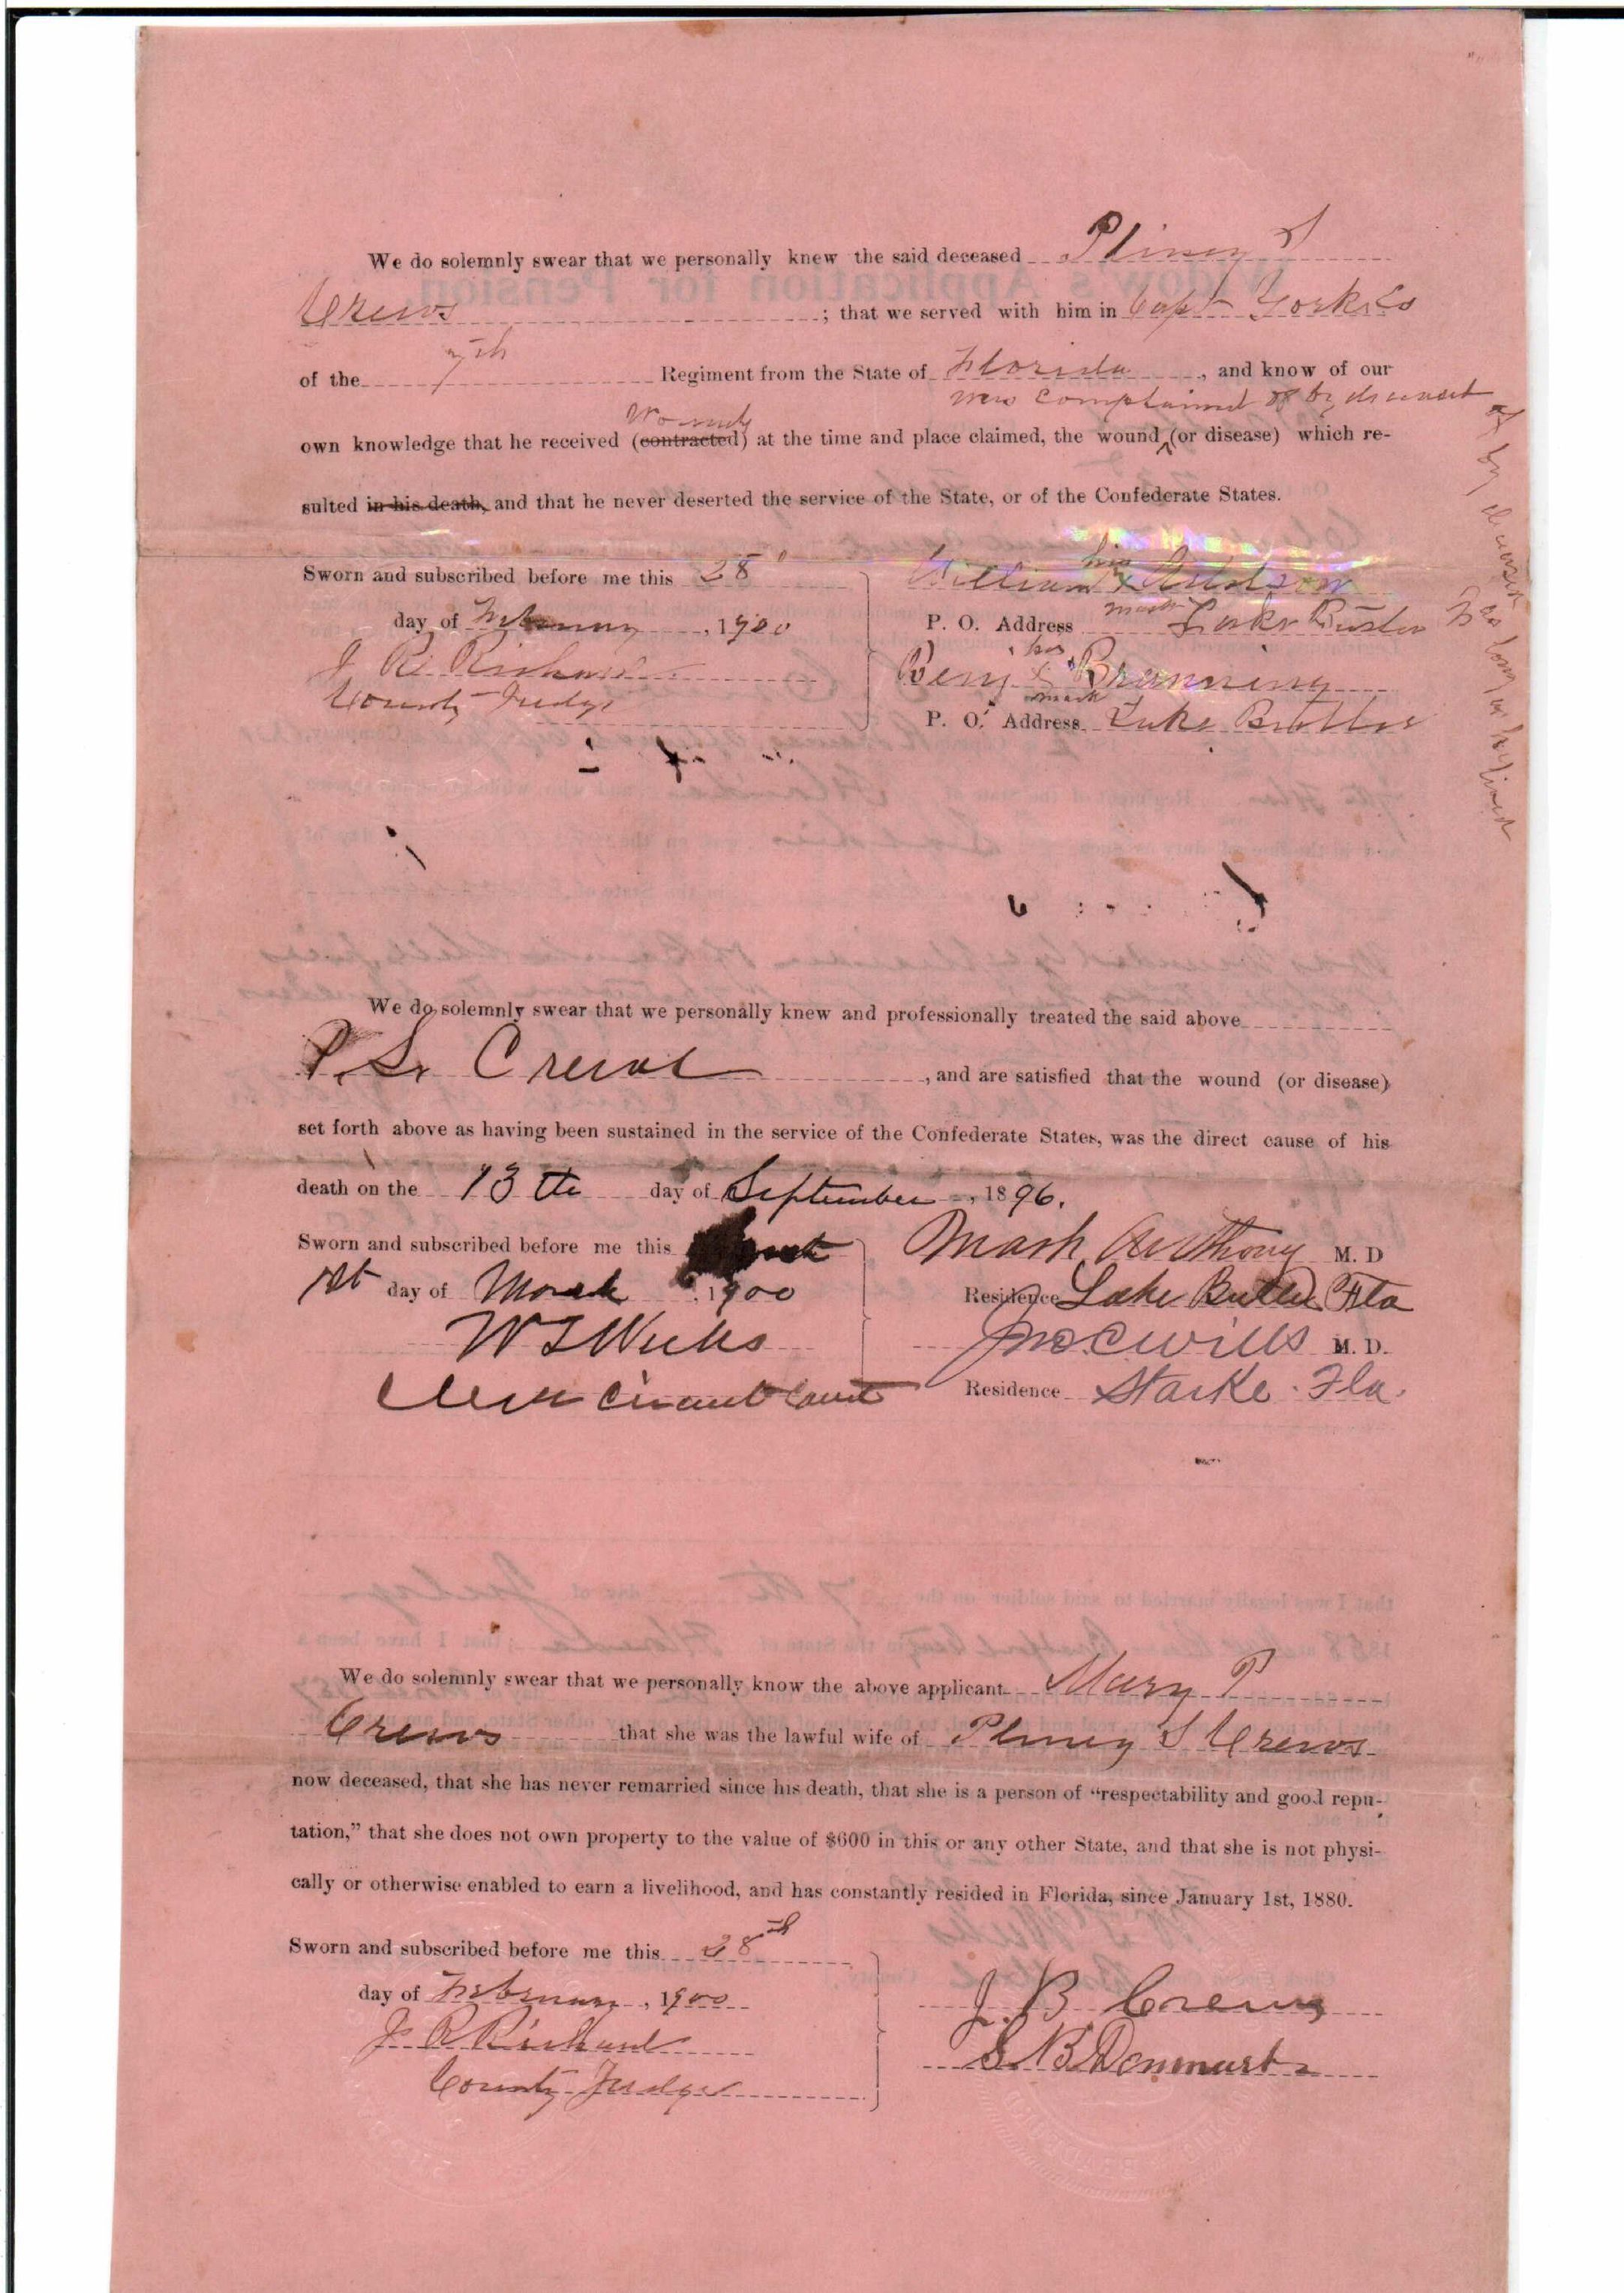 We do solemnly swear that we personally knew the said deceased Pliney S
Crews ; that we served with him in Capt Yorks Co
of the 7th Regiment from the State of Florida, and know of our
was complained of by deceased
wounds
own knowledge that he received (contracted) at the time and place claimed, the wound (or disease) which re-
sulted in his death, and that he never deserted the service of the State, or of the Confederate States.
of by deceased
as long as he lived
Sworn and subscribed before me this 28
William his x mark
day of February, 1900
P. O. Address Lake Butler
J R Richard
Benj his x mark Branning
County Judge
P. O. Address Lake Butler
We do solemnly swear that we personally knew and professionally treated the said above
P. S. Crews, and are satisfied that the wound (or disease)
set forth above as having been sustained in the service of the Confederate States, was the direct cause of his
death on the 13th day of September, 1896.
Sworn and subscribed before me this
Mark Anthony M. D
1st day of March 1900
Residence Lake Butler Fla
Jno. C Wills M. D.
Clerk Circuit Court
Residence Starke. Fla.
We do solemnly swear that we personally know the above applicant Mary P
Crews that she was the lawful wife of Pliney S Crews
now deceased, that she has never remarried since his death, that she is a person of “respectability and good repu-
tation,” that she does not own property to the value of $600 in this or any other State, and that she is not physi-
cally or otherwise enabled to earn a livelihood, and has constantly resided in Florida, since January 1st, 1880.
Sworn and subscribed before me this 28th
day of February, 1900
J. B Crews
J R Richard
County Judge